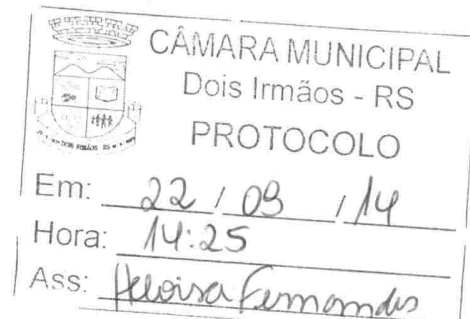 CÂMARA MUNICIPAL
Dois Irmãos - RS
PROTOCOLO
Em: 22 / 09 / 14
Hora: 14:25
Ass: Heloisa Fernandes